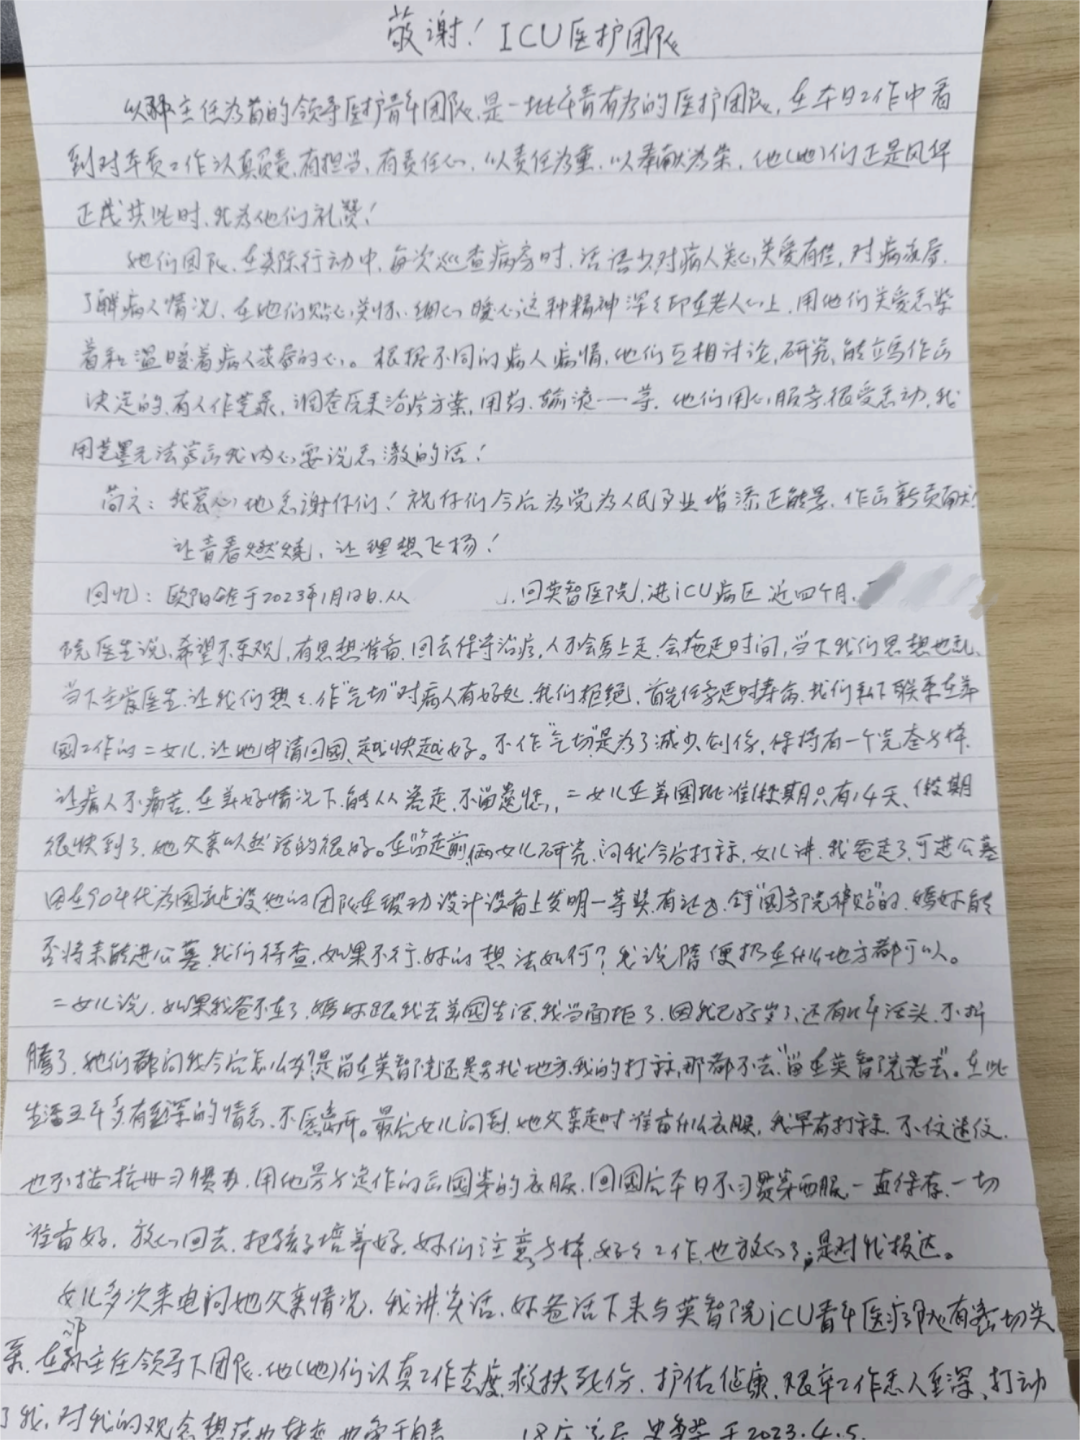 敬谢！ICU医护团队
以孙主任为首的领导医护青年团队，是一批年青有为的医护团队，在平日工作中看
到对本员工作认真负责，有担当，有责任心，以责任为重，以奉献为荣，他（她）们正是风华
正茂其此时，我为他们礼赞！
她们团队，在实际行动中，每次巡查病房时，话语少对病人关心关爱有佳，对病家属
了解病人情况，在他们贴心关怀，细心暖心这种精神深深印在老人心上，用他们关爱感染
着和温暖着病人家属的心。根据不同的病人病情，他们互相讨论，研究，能立马作出
决定的，有人作笔录，调查原来治疗方案，用药、输液……等，他们用心服务很受感动，我
用笔墨无法写出我内心要说感激的话！
简之：我衷心地感谢你们！祝你们今后为党为人民事业增添正能量，作出新贡献！
让青春燃烧，让理想飞扬！
回忆：欧阳 于2023年1月12日，从 回英智医院，进iCU病区近四个月，
院医生说，希望不乐观，有思想准备，回去保守治疗，人不会马上走，会拖延时间，当下我们思想也乱，
当下主管医生，让我们想想，作“气切”对病人有好处，我们拒绝，首先任务延时寿命，我们私下联系在美
国工作的二女儿，让她申请回国，越快越好。不作“气切”是为了减少创伤，保持有一个完整身体，
让病人不痛苦，在美好情况下，能够从容走，不留遗憾，二女儿在美国批准假期只有14天，假期
很快到了，她父亲仍然活的很好。在临走前，俩女儿研究，问我今后打算，女儿讲，我爸走了，可进公墓
因在90年代为国家建设他的团队在 动设计设备上发明一等奖，有 享“国务院津贴”的，妈妈能
否将来能进公墓，我们待查，如果不行，妈的想法如何？我说随便扔在什么地方都可以。
二女儿说，如果我爸不在了，妈妈跟我去美国生活，我当面拒了，因我已85岁了，还有几年活头，不折
腾了，她们都问我今后怎么办？是留在英智院还是另找地方，我的打算，那都不去，“留在英智院老去”。在此
生活五年多有至深的情感，不愿离开。最后女儿问到，她父亲走时准备什么衣服，我早有打算，不仅迷信，
也不按杭州习惯办，用他旁身定作的出国装的衣服，回国后平日不习惯穿西服，一直保存，一切
准备好，放心回去，把孩子培养好，妳们注意身体，好好工作，也放心了，是对我报达。
女儿多次来电问她父亲情况，我讲实话，妳爸活下来与英智院iCU青年医疗队有密切关
系，在孙主任领导下团队，他（她）们认真工作态度，救扶死伤，护佑健康，艰辛工作感人至深，打动
了我，对我的观念想法也转变，也 于2023.4.5.